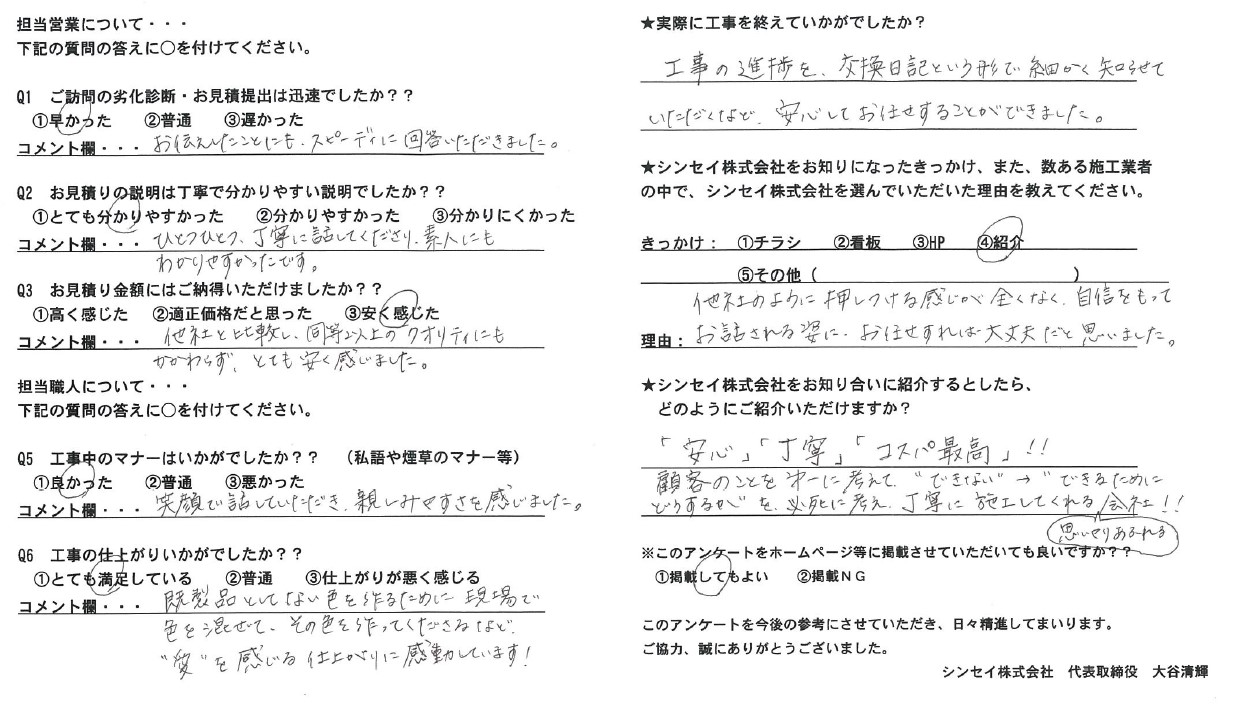 担当営業について・・・
下記の質問の答えに〇を付けてください。
Q1 ご訪問の劣化診断・お見積提出は迅速でしたか？？
①早かった ②普通 ③遅かった
コメント欄・・・ お伝えしたことにも、スピーディに回答いただきました。
Q2 お見積りの説明は丁寧で分かりやすい説明でしたか？？
①とても分かりやすかった ②分かりやすかった ③分かりにくかった
コメント欄・・・ ひとつひとつ、丁寧に話してくださり、素人にも
わかりやすかったです。
Q3 お見積り金額にはご納得いただけましたか？？
①高く感じた ②適正価格だと思った ③安く感じた
コメント欄・・・ 他社と比較し、同等以上のクオリティにも
かかわらず、とても安く感じました。
担当職人について・・・
下記の質問の答えに〇を付けてください。
Q5 工事中のマナーはいかがでしたか？？ （私語や煙草のマナー等）
①良かった ②普通 ③悪かった
コメント欄・・・ 笑顔で話していただき、親しみやすさを感じました。
Q6 工事の仕上がりいかがでしたか？？
①とても満足している ②普通 ③仕上がりが悪く感じる
コメント欄・・・ 既製品としてない色を作るために現場で
色を混ぜて、その色を作ってくださるなど、
"愛"を感じる仕上がりに感動しています！
★実際に工事を終えていかがでしたか？
工事の進捗を、交換日記という形で細かく知らせて
いただくなど、安心してお任せすることができました。
★シンセイ株式会社をお知りになったきっかけ、また、数ある施工業者
の中で、シンセイ株式会社を選んでいただいた理由を教えてください。
きっかけ： ①チラシ ②看板 ③HP ④紹介
⑤その他（ ）
他社のように押しつける感じが全くなく、自信をもって
理由： お話される姿に、お任せすれば大丈夫だと思いました。
★シンセイ株式会社をお知り合いに紹介するとしたら、
どのようにご紹介いただけますか？
「安心」「丁寧」「コスパ最高」！！
顧客のことを第一に考えて "できない"→"できるために
どうするか"を、必死に考え、丁寧に施工してくれる会社！！
思いやりあふれる
※このアンケートをホームページ等に掲載させていただいても良いですか？？
①掲載してもよい ②掲載ＮＧ
このアンケートを今後の参考にさせていただき、日々精進してまいります。
ご協力、誠にありがとうございました。
シンセイ株式会社 代表取締役 大谷清輝